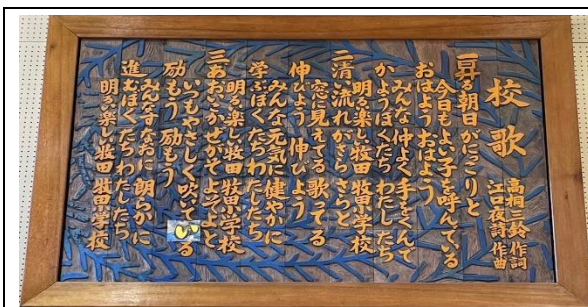 校歌
高桐三鈴 作詞
江口夜詩 作曲
一 昇る朝日がにっこりと
今日もよい子を呼んでいる
おはようおはよう
みんな仲よく手をくんで
かようぼくたち わたしたち
明る楽し 牧田 牧田小学校
二 清い流れがさらさらと
窓に見えてる 歌ってる
伸びよう 伸びよう
みんな元気に健やかに
学ぶぼくたちわたしたち
明る楽し 牧田 牧田小学校
三 あおいかぜがそよそよと
いつもやさしく吹いている
励もう 励もう
みんなすなおに 朗らかに
進むぼくたちわたしたち
明る楽し 牧田 牧田小学校